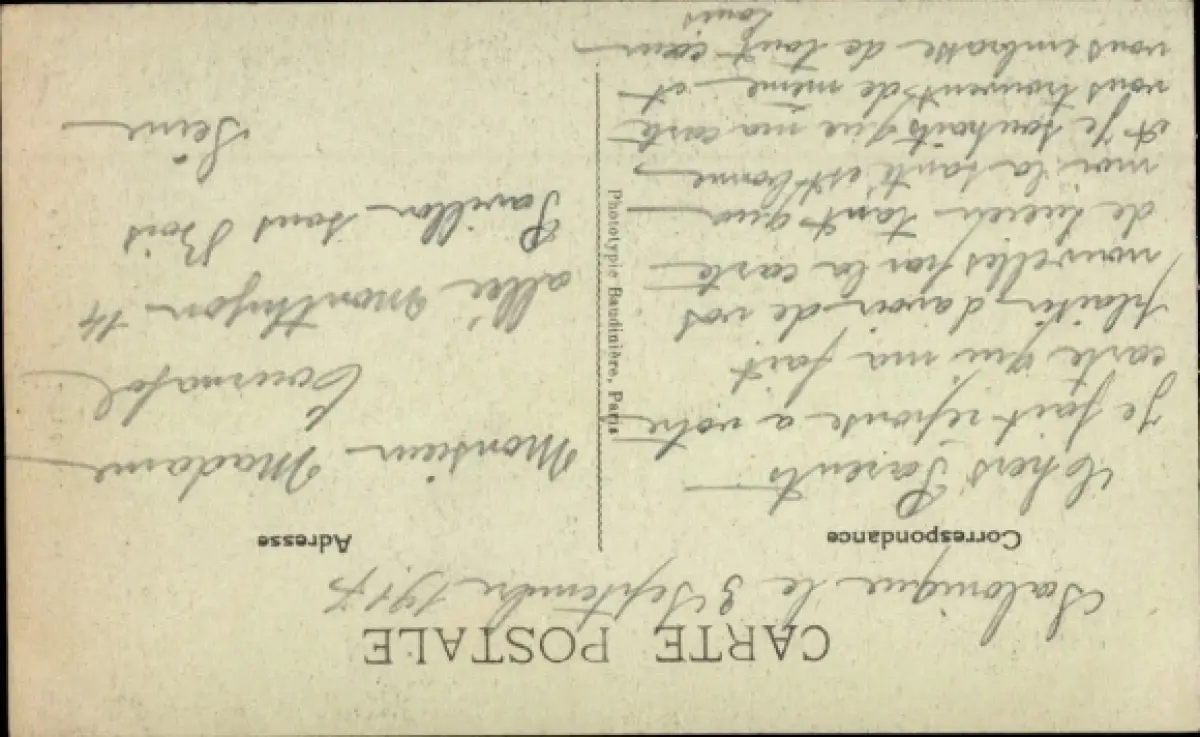 CARTE POSTALE
Salonique le 3 Septembre 1917
Correspondance
Chers Parents
Je fait réponse a votre
carte qui ma fait
plaisir davoir de vos
nouvelles par la carte
de lucien tant qua
moi la santé est bonne
et je souhaits que ma carte
vous trouvent de même et
vous embrasse de tout cœur
Louis
Phototypie Baudinière, Paris
Adresse
Monsieur Madame
allée Monthyon 14
Pavillon sous Bois
Seine